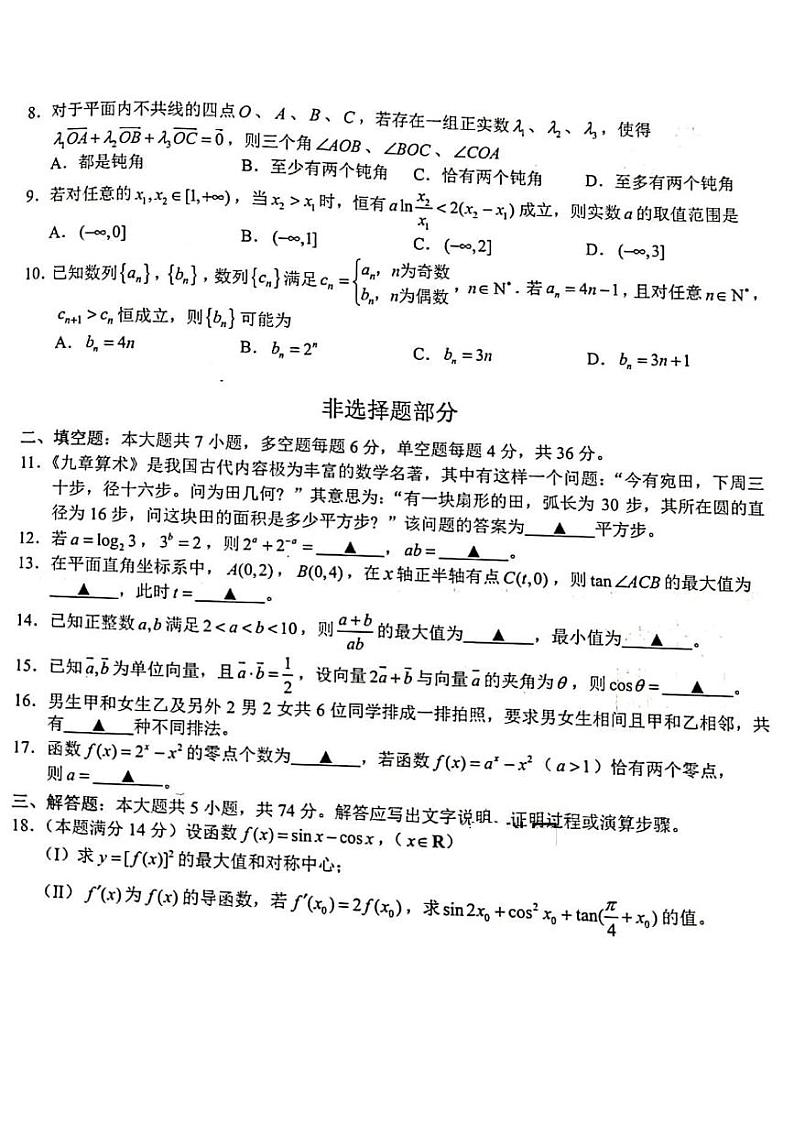 8. 对于平面内不共线的四点O、A、B、C，若存在一组正实数λ₁、λ₂、λ₃，使得
λ₁OA⃗+λ₂OB⃗+λ₃OC⃗=0⃗，则三个角∠AOB、∠BOC、∠COA
A. 都是钝角 B. 至少有两个钝角 C. 恰有两个钝角 D. 至多有两个钝角
9. 若对任意的x₁,x₂∈[1,+∞)，当x₂>x₁时，恒有a ln(x₂/x₁)<2(x₂-x₁)成立，则实数a的取值范围是
A. (-∞,0] B. (-∞,1] C. (-∞,2] D. (-∞,3]
10. 已知数列{aₙ}，{bₙ}，数列{cₙ}满足cₙ={aₙ，n为奇数 bₙ，n为偶数，n∈N*．若aₙ=4n-1，且对任意n∈N*，
cₙ₊₁>cₙ恒成立，则{bₙ}可能为
A. bₙ=4n B. bₙ=2ⁿ C. bₙ=3n D. bₙ=3n+1
非选择题部分
二、填空题：本大题共7小题，多空题每题6分，单空题每题4分，共36分。
11.《九章算术》是我国古代内容极为丰富的数学名著，其中有这样一个问题：“今有宛田，下周三
十步，径十六步。问为田几何？”其意思为：“有一块扇形的田，弧长为30步，其所在圆的直
径为16步，问这块田的面积是多少平方步？”该问题的答案为__▲__平方步。
12. 若a=log₂3，3ᵇ=2，则2ᵃ+2⁻ᵃ=__▲__，ab=__▲__。
13. 在平面直角坐标系中，A(0,2)，B(0,4)，在x轴正半轴有点C(t,0)，则tan∠ACB的最大值为
__▲__，此时t=__▲__。
14. 已知正整数a,b满足2<a<b<10，则(a+b)/ab的最大值为__▲__，最小值为__▲__。
15. 已知a⃗,b⃗为单位向量，且a⃗·b⃗=1/2，设向量2a⃗+b⃗与向量a⃗的夹角为θ，则cosθ=__▲__。
16. 男生甲和女生乙及另外2男2女共6位同学排成一排拍照，要求男女生相间且甲和乙相邻，共
有__▲__种不同排法。
17. 函数f(x)=2ˣ-x²的零点个数为__▲__，若函数f(x)=aˣ-x²（a>1）恰有两个零点，
则a=__▲__。
三、解答题：本大题共5小题，共74分。解答应写出文字说明、证明过程或演算步骤。
18.（本题满分14分）设函数f(x)=sinx-cosx，（x∈R）
(I) 求y=[f(x)]²的最大值和对称中心；
(II) f′(x)为f(x)的导函数，若f′(x₀)=2f(x₀)，求sin2x₀+cos²x₀+tan(π/4+x₀)的值。